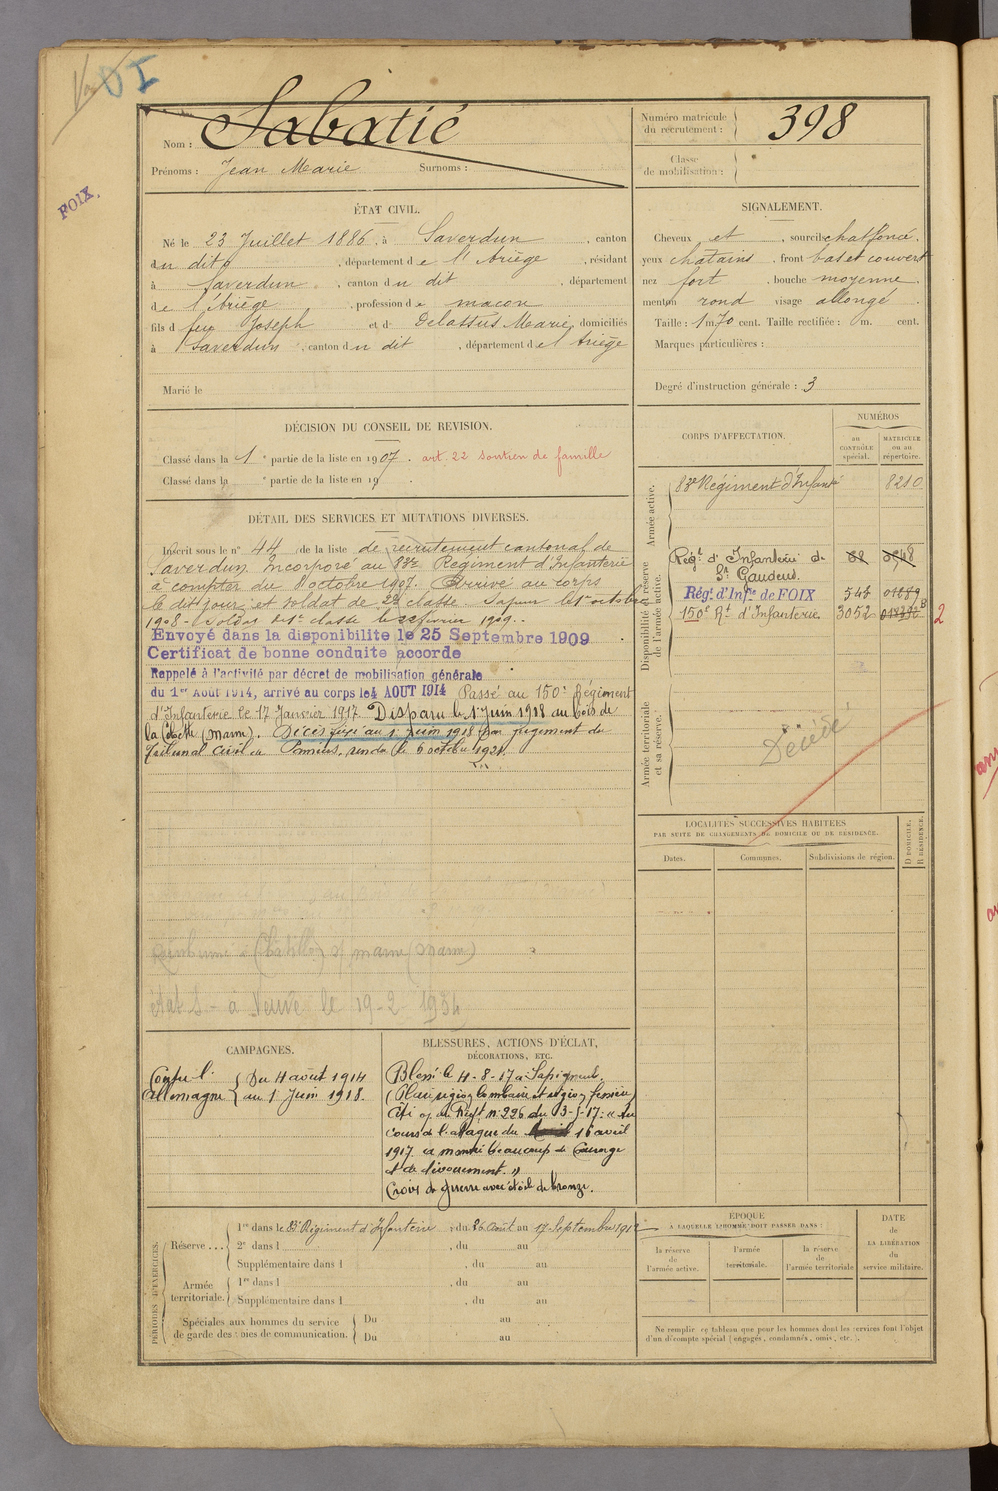 VOI
FOIX.
Nom : Sabatié
Prénoms : Jean Marie Surnoms :
Numéro matricule du recrutement : 398
Classe de mobilisation :
ÉTAT CIVIL.
Né le 23 Juillet 1886, à Saverdun, canton
du dit, département de l'Ariège, résidant
à Saverdun, canton du dit, département
de l'Ariège, profession de maçon
fils de feu Joseph et de Delassus Marie, domiciliés
à Saverdun, canton du dit, département de l'Ariège
Marié le
SIGNALEMENT.
Cheveux et, sourcils chat foncé.
yeux chatains, front bas et couvert
nez fort, bouche moyenne.
menton rond visage allongé
Taille : 1 m 70 cent. Taille rectifiée : m. cent.
Marques particulières :
Degré d'instruction générale : 3
DÉCISION DU CONSEIL DE REVISION.
Classé dans la 1e partie de la liste en 1907. art. 22 soutien de famille
Classé dans la e partie de la liste en 19
DÉTAIL DES SERVICES ET MUTATIONS DIVERSES.
Inscrit sous le n° 44 de la liste de recrutement cantonal de
Saverdun. Incorporé au 83e Régiment d'Infanterie
à compter du 8 octobre 1907. Arrivé au corps
le dit jour et soldat de 2e classe. Sapeur le 1er octobre
1908. Soldat de 1e classe le 22 février 1909.
Envoyé dans la disponibilite le 25 Septembre 1909
Certificat de bonne conduite accorde
Rappelé à l'activité par décret de mobilisation générale
du 1er Août 1914, arrivé au corps le 4 AOUT 1914 Passé au 150e Régiment
d'Infanterie le 17 Janvier 1917. Disparu le 1 Juin 1918 au bois de
la (Marne). Décès fixé au 1 Juin 1918 par jugement du
Tribunal civil de Pamiers, rendu le 6 octobre 1921.
Réinhumé à Chatillon s/ marne (Marne)
état S - à Veuve le 19-2-1934
CORPS D'AFFECTATION.
NUMÉROS
au CONTRÔLE spécial.
MATRICULE ou au répertoire.
Armée active.
83e Régiment d'Infant 8210
Disponibilité et réserve de l'armée active.
Régt d'Infanterie de St Gaudens.
Régt d'Infie de FOIX 548 01889
150e Rt d'Infanterie 3052
2
Armée territoriale et sa réserve.
Décédé
LOCALITÉS SUCCESSIVES HABITÉES
PAR SUITE DE CHANGEMENTS DE DOMICILE OU DE RÉSIDENCE.
Dates. Communes. Subdivisions de région. D DOMICILE, R RÉSIDENCE.
CAMPAGNES.
Contre l'Allemagne { Du 4 août 1914
au 1 Juin 1918.
BLESSURES, ACTIONS D'ÉCLAT,
DÉCORATIONS, ETC.
Blessé le 4-8-17 à Sapigneul,
(Plaie région lombaire et région fessière)
Cité o/ du Régt n° 226 du 13-5-17 : « Au
cours de l'attaque du 16 avril
1917 a montré beaucoup de Courage
et de dévouement. »
Croix de guerre avec étoile de bronze.
PÉRIODES D'EXERCICES.
Réserve ... 1re dans le 83e Régiment d'Infanterie, du 26 Août au 17 Septembre 1912
2e dans l , du au
Supplémentaire dans l , du au
Armée territoriale. 1re dans l , du au
Supplémentaire dans l , du au
Spéciales aux hommes du service de garde des voies de communication. Du au
Du au
ÉPOQUE
A LAQUELLE L'HOMME DOIT PASSER DANS :
la réserve de l'armée active.
l'armée territoriale.
la réserve de l'armée territoriale
DATE DE LA LIBÉRATION du service militaire.
Ne remplir ce tableau que pour les hommes dont les services font l'objet
d'un décompte spécial (engagés, condamnés, omis, etc.).